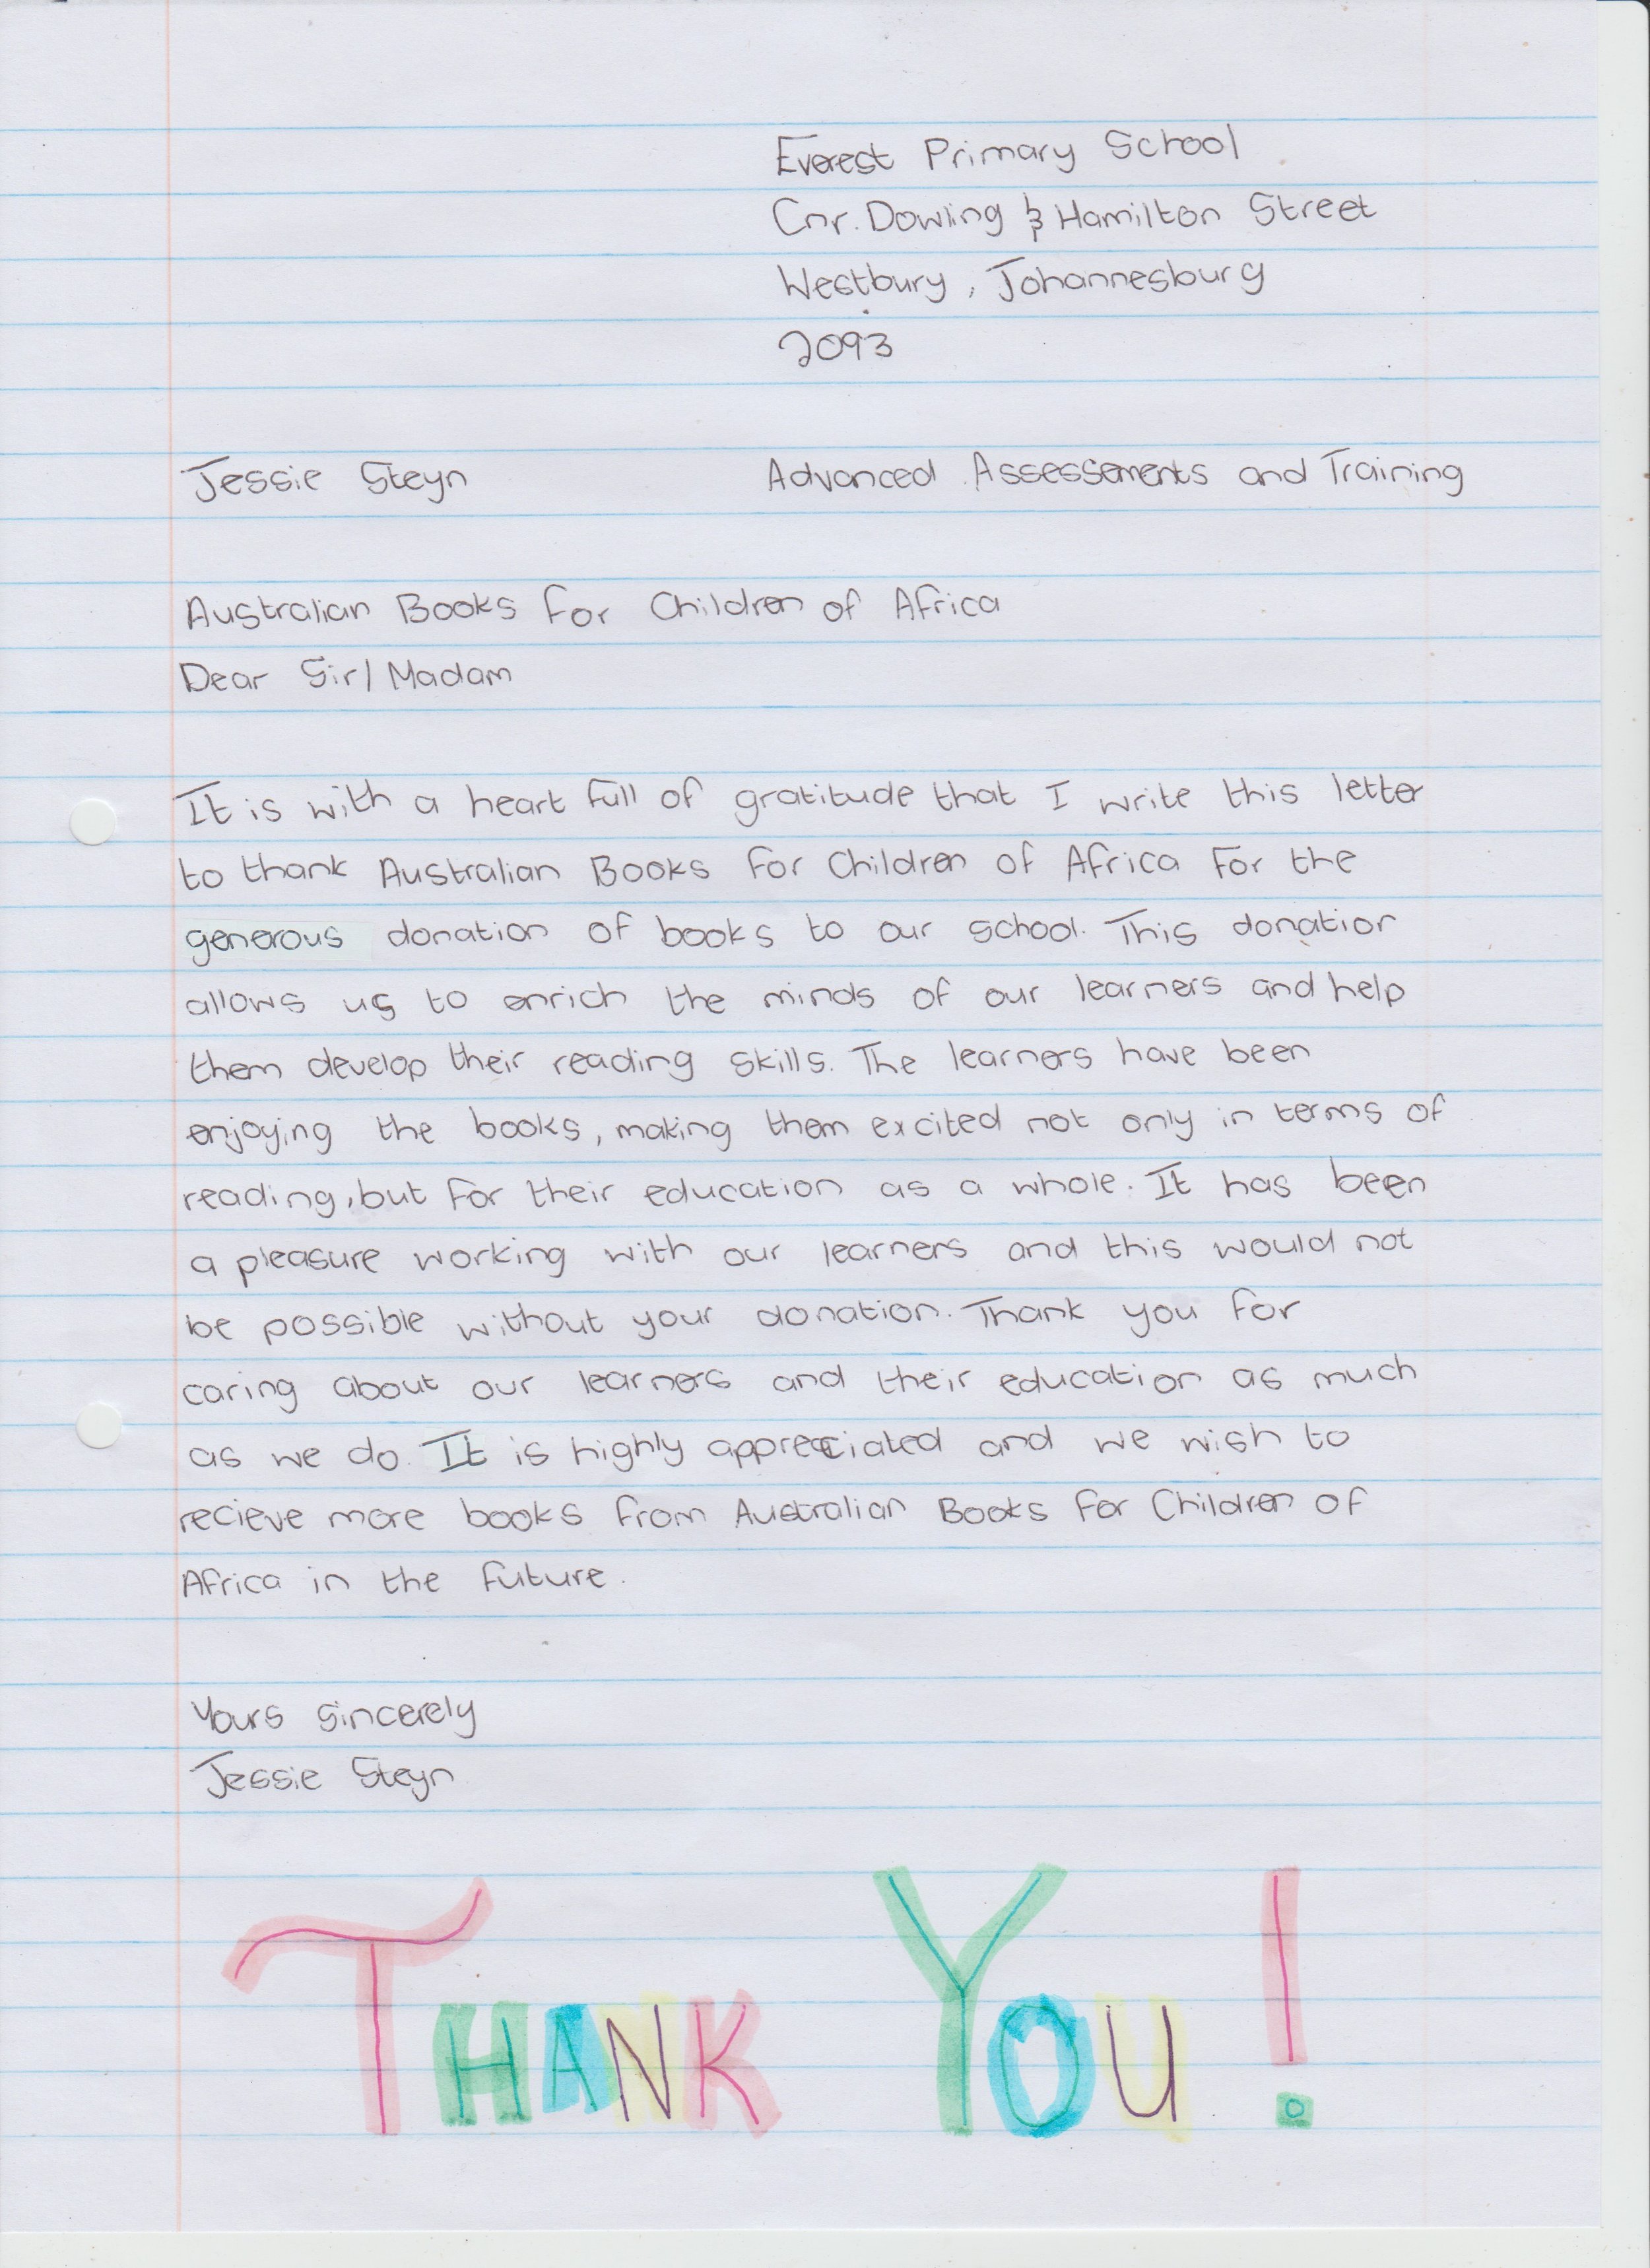 Everest Primary School
Cnr. Dowling & Hamilton Street
Westbury, Johannesburg
2093
Jessie Steyn Advanced Assessements and Training
Australian Books For Children of Africa
Dear Sir/Madam
It is with a heart full of gratitude that I write this letter
to thank Australian Books For Children of Africa for the
generous donation of books to our school. This donation
allows us to enrich the minds of our learners and help
them develop their reading skills. The learners have been
enjoying the books, making them excited not only in terms of
reading, but for their education as a whole. It has been
a pleasure working with our learners and this would not
be possible without your donation. Thank you for
caring about our learners and their education as much
as we do. It is highly appreciated and we wish to
recieve more books from Australian Books For Children of
Africa in the future.
Yours sincerely
Jessie Steyn
THANK YOU!